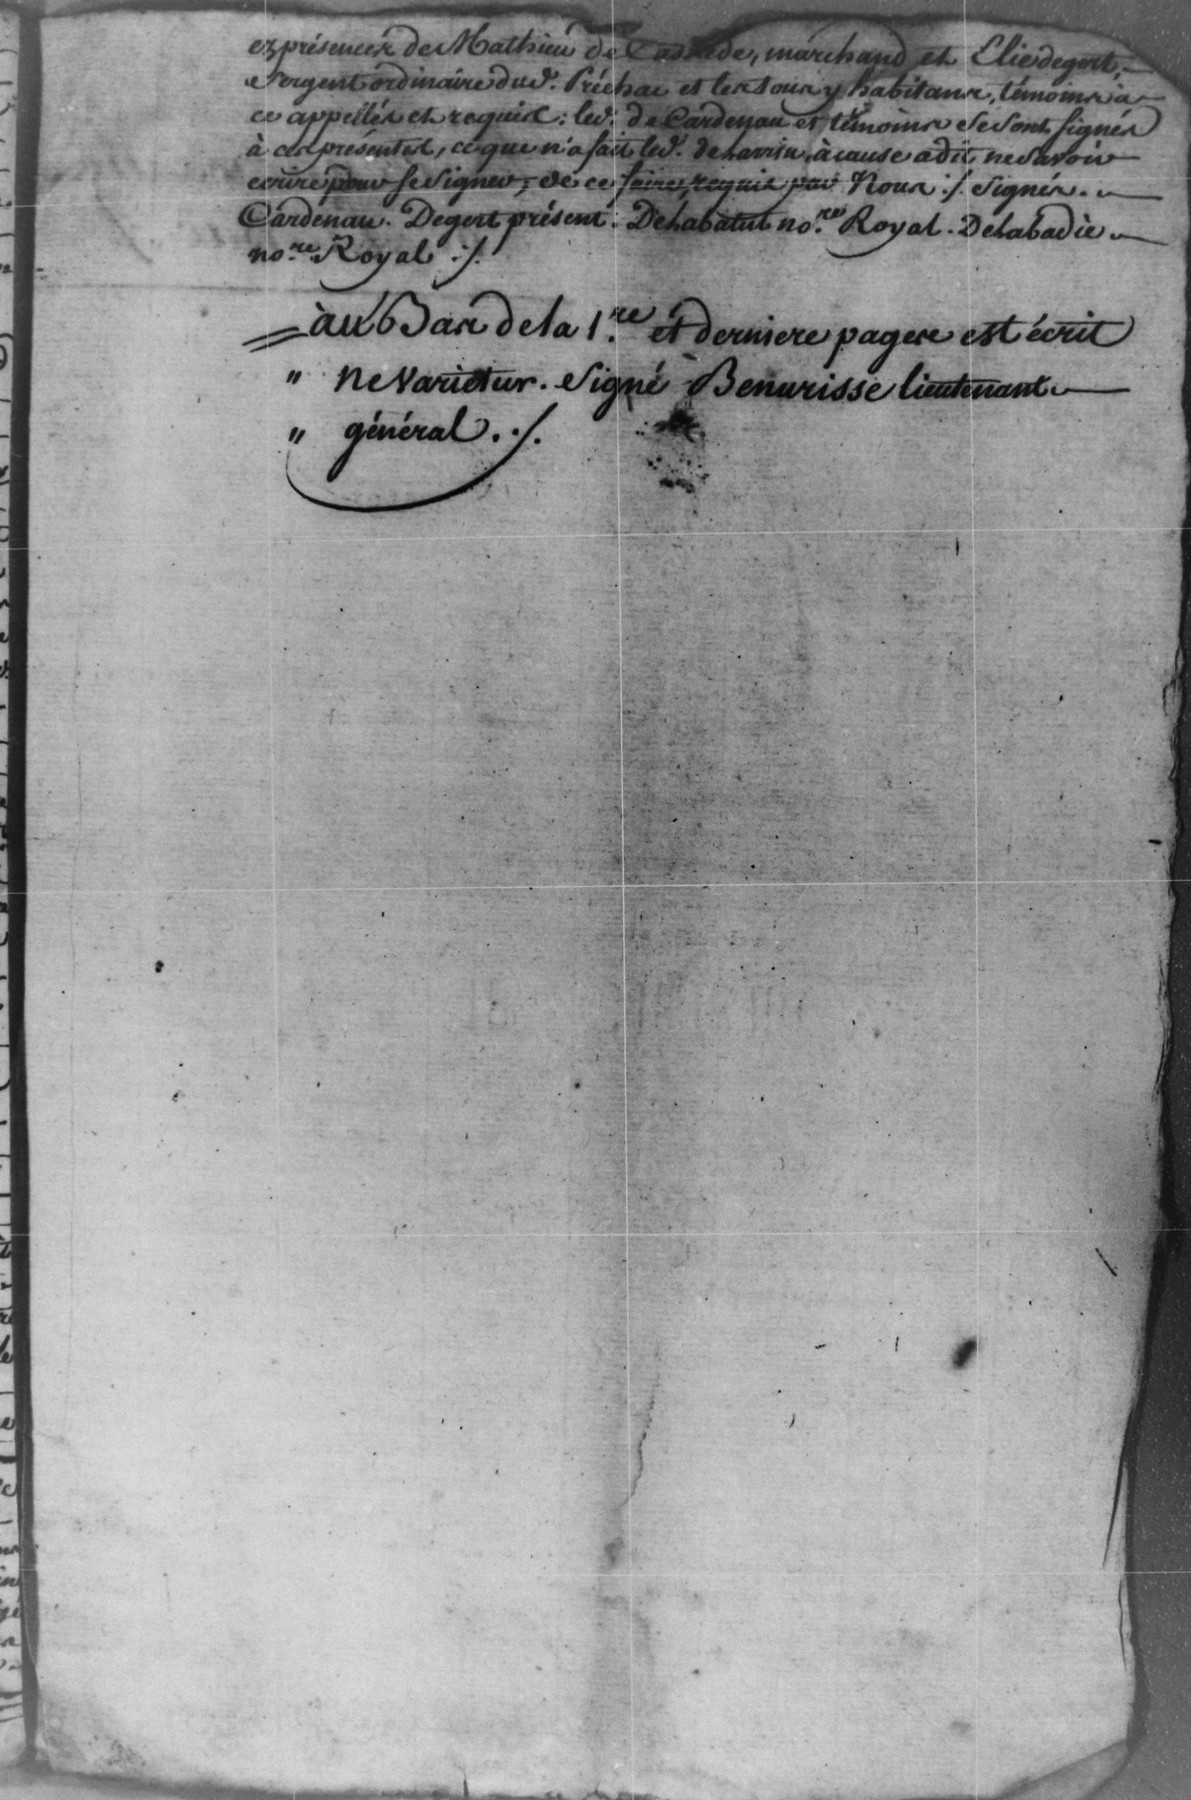 ez présences de Mathieu de Cassede, marchand et Elie degert,
Sergent ordinaire dud. Préchac et les tous y habitans, témoins à
ce appellés et requis: led. de Cardenau et témoins se sont signés
à ces présentes, ce que n'a fait led. , à cause a dit ne savoir
écrire pour se signer, de ce faire requis par Nous ./. Signés.
Cardenau. Degert présent. Delabatut no.re Royal. Delabadie
no.re Royal ./.
= aux Bas de la 1.re et derniere pages est écrit
" ne Varietur. Signé Benurisse lieutenant
" général ./.